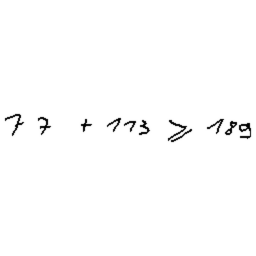 77 + 113 ⩾ 189